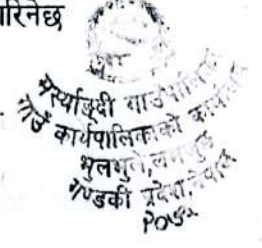 गरिनेछ
मर्स्याङ्दी गाउँपालिका
गाउँ कार्यपालिकाको कार्यालय
भुलभुले, लमजुङ
गण्डकी प्रदेश, नेपाल